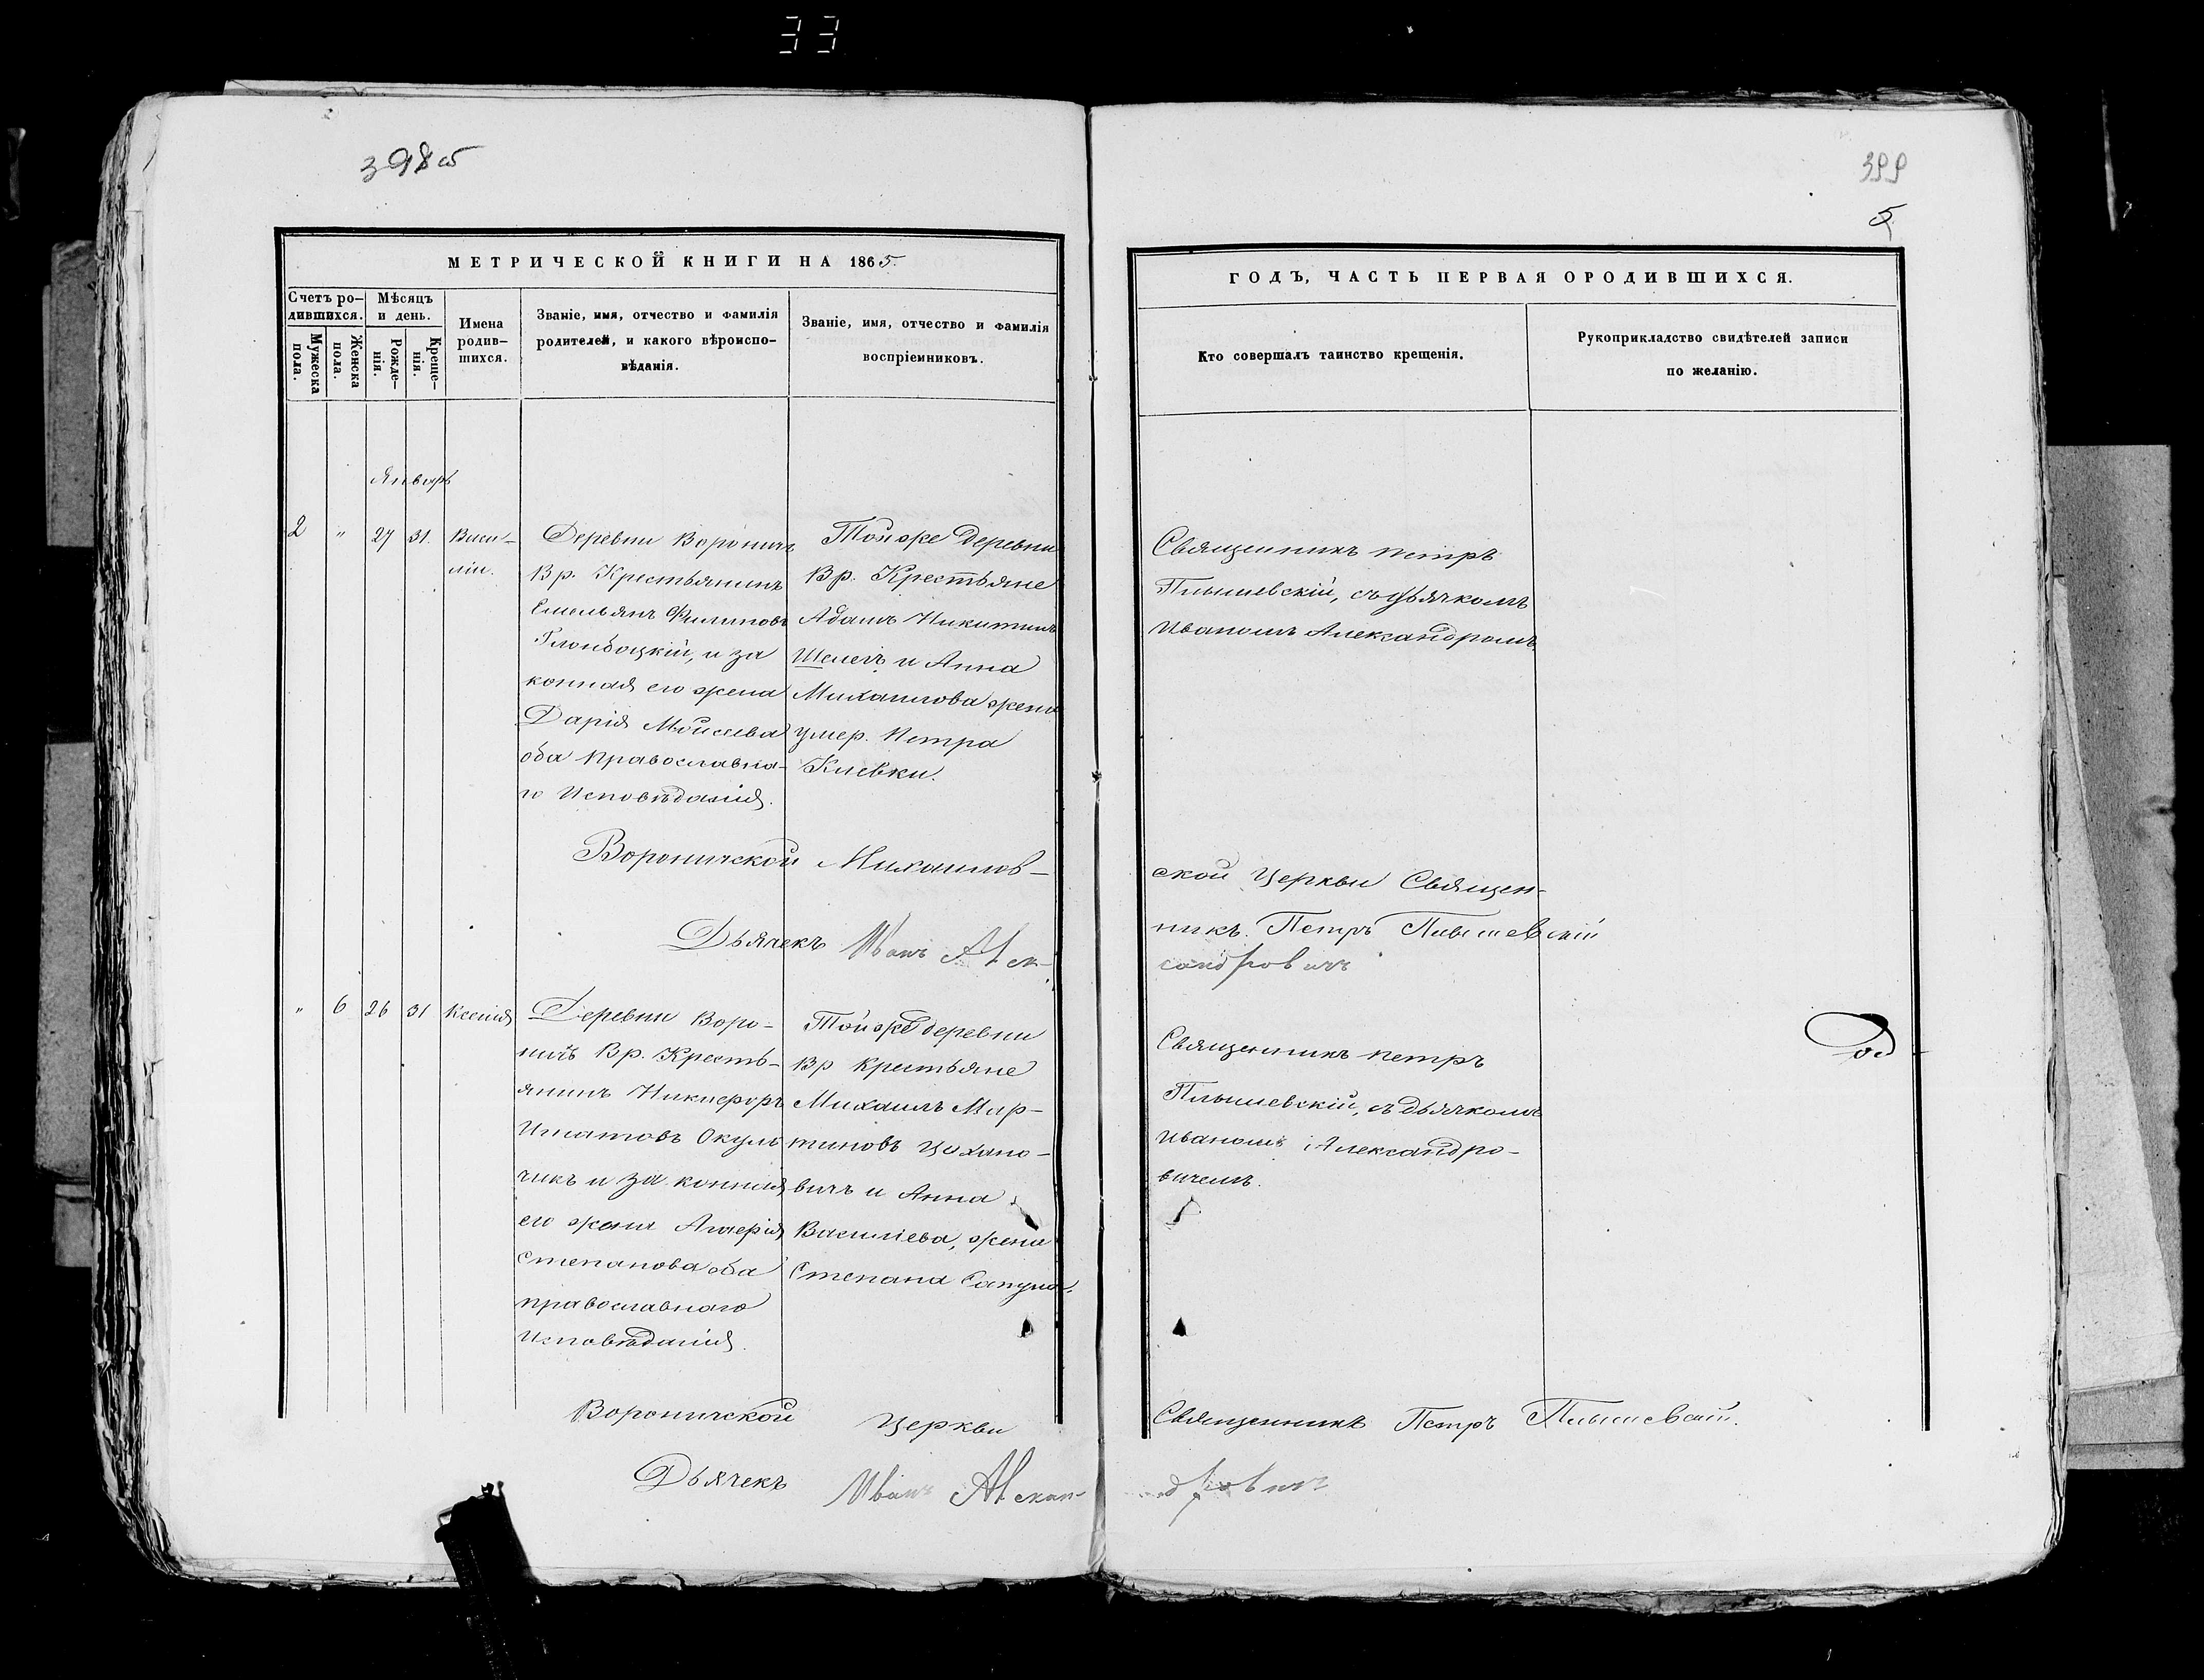 33
398 об
399
5
МЕТРИЧЕСКОЙ КНИГИ НА 1865.
Счетъ ро-
дившихся.
Мужеска
пола.
Женска
пола.
Мѣсяцъ
и день.
Рожде-
нія.
Креще-
нія.
Имена
родив-
шихся.
Званіе, имя, отчество и фамилія
родителей, и какого вѣроиспо-
вѣданія.
Званіе, имя, отчество и фамилія
воспріемниковъ.
ГОДЪ, ЧАСТЬ ПЕРВАЯ ОРОДИВШИХСЯ.
Кто совершалъ таинство крещенія.
Рукоприкладство свидѣтелей записи
по желанію.
Январь
2 " 27 31.
Васи-
лій.
Деревни Вороничъ
Вр. Крестьянинъ
Емельянъ Филиповъ
и за
конная его жена
Дарія Моисеева
оба Православна-
го Исповѣданія.
Той же Деревни
Вр. Крестьяне
Адамъ Никитинъ
и Анна
Михаилова жена
умер. Петра
Клевки.
Священникъ Петръ
съ дьячкомъ
Иваномъ Александромъ
Вороничской Михаилов-
ской Церкви Священ-
никъ Петръ
Дьячекъ Иванъ Алек-
сандровичъ
" 6 26 31
Ксенія
Деревни Воро-
ничъ Вр. Кресть-
янинъ Никифоръ
Игнатовъ Окуль
чикъ и за конная
его жена
Степанова оба
православнаго
Исповѣданія.
Той же деревни
Вр крестьяне
Михаилъ Мар-
тиновъ Цихано-
вичъ и Анна
Василіева, жена
Степана Сапуна.
Священникъ Петръ
съ дьячкомъ
Иваномъ Александро-
вичемъ.
Вороничской Церкви
Священникъ Петръ
Дьячекъ Иванъ Алексан-
дровичъ